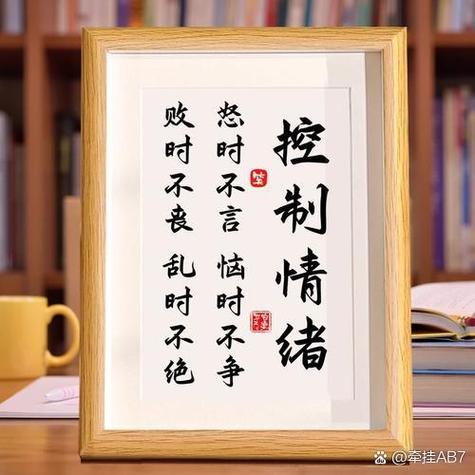 控制情绪
怒时不言 恼时不争
败时不丧 乱时不绝
笑
@牵挂AB7